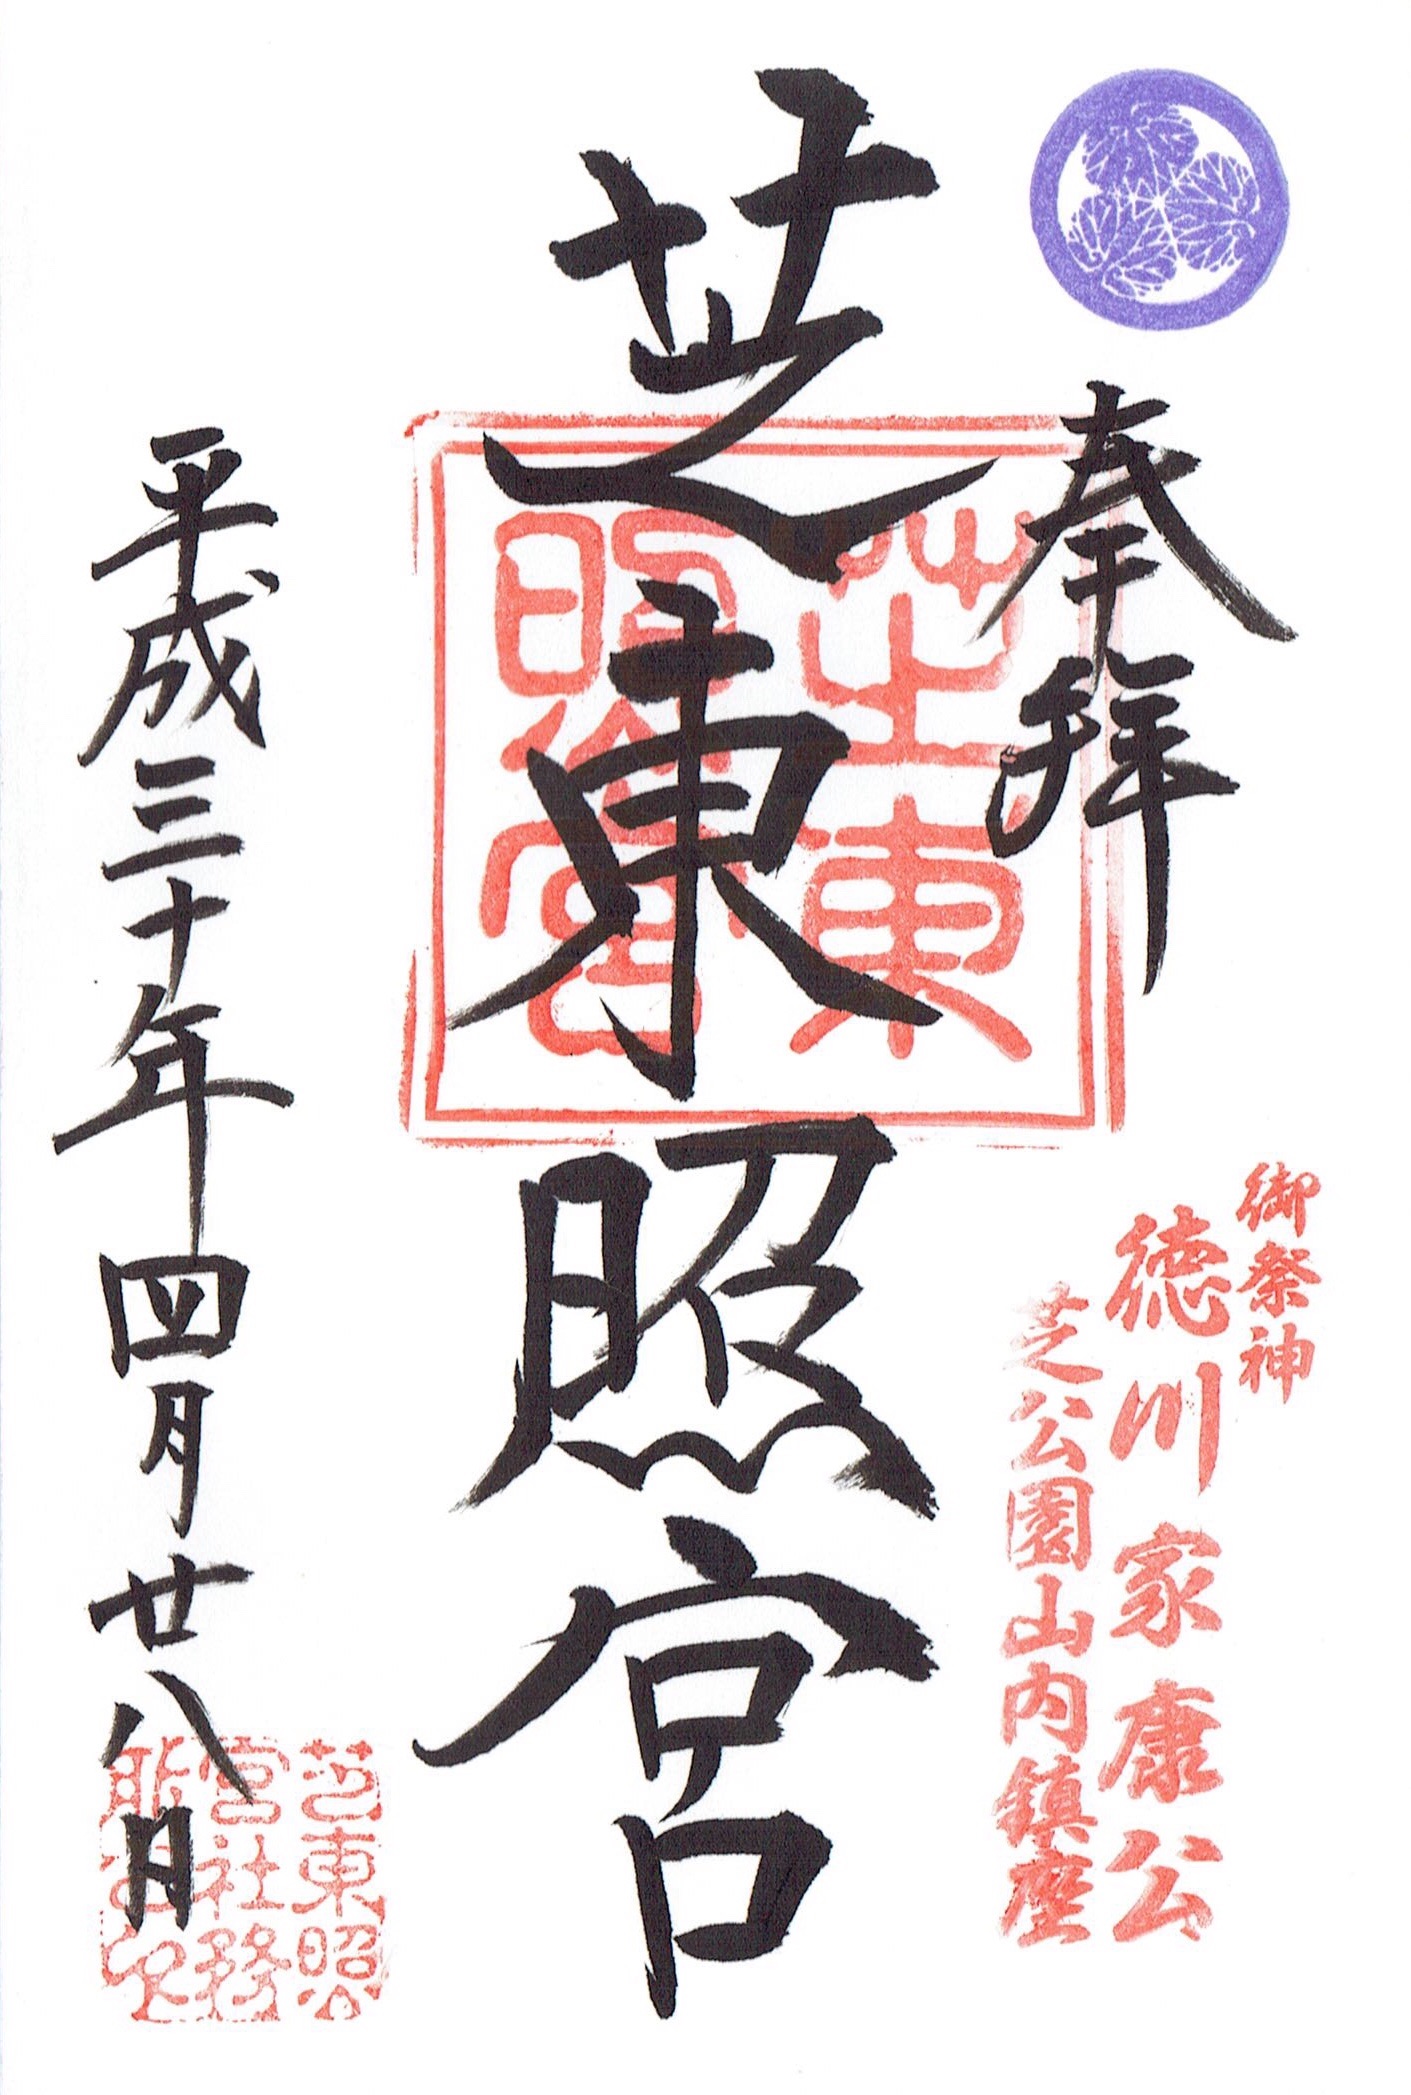 奉拝
御祭神
徳川家康公
芝公園山内鎮座
芝東照宮
芝東
照宮
平成三十年四月廿八日
芝東照
宮社務